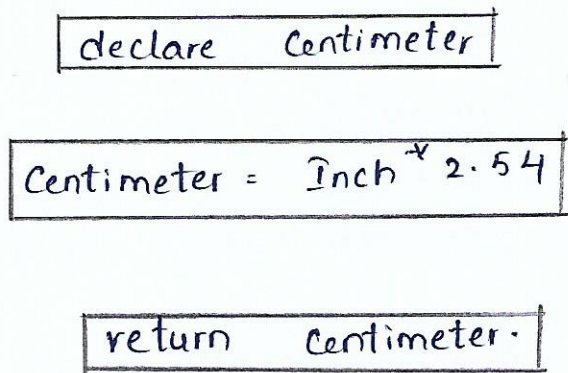 declare Centimeter
Centimeter = Inch * 2.54
return Centimeter.